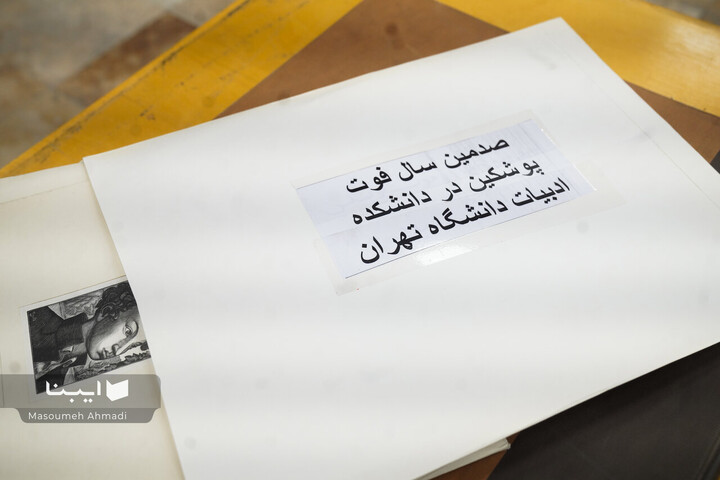 صدمین سال فوت
پوشکین در دانشکده
ادبیات دانشگاه تهران
ایبنا
Masoumeh Ahmadi